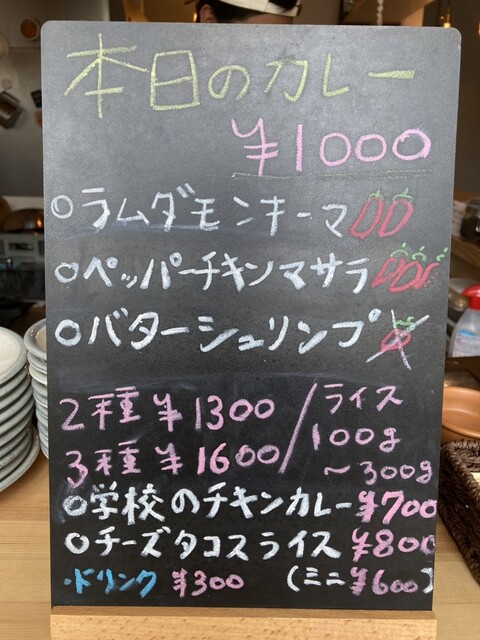 本日のカレー
¥1000
○ラムダモンキーマ
○ペッパーチキンマサラ
○バターシュリンプ
2種 ¥1300
3種 ¥1600
ライス
100g
〜300g
○学校のチキンカレー ¥700
○チーズタコスライス ¥800
・ドリンク ¥300 (ミニ ¥600)